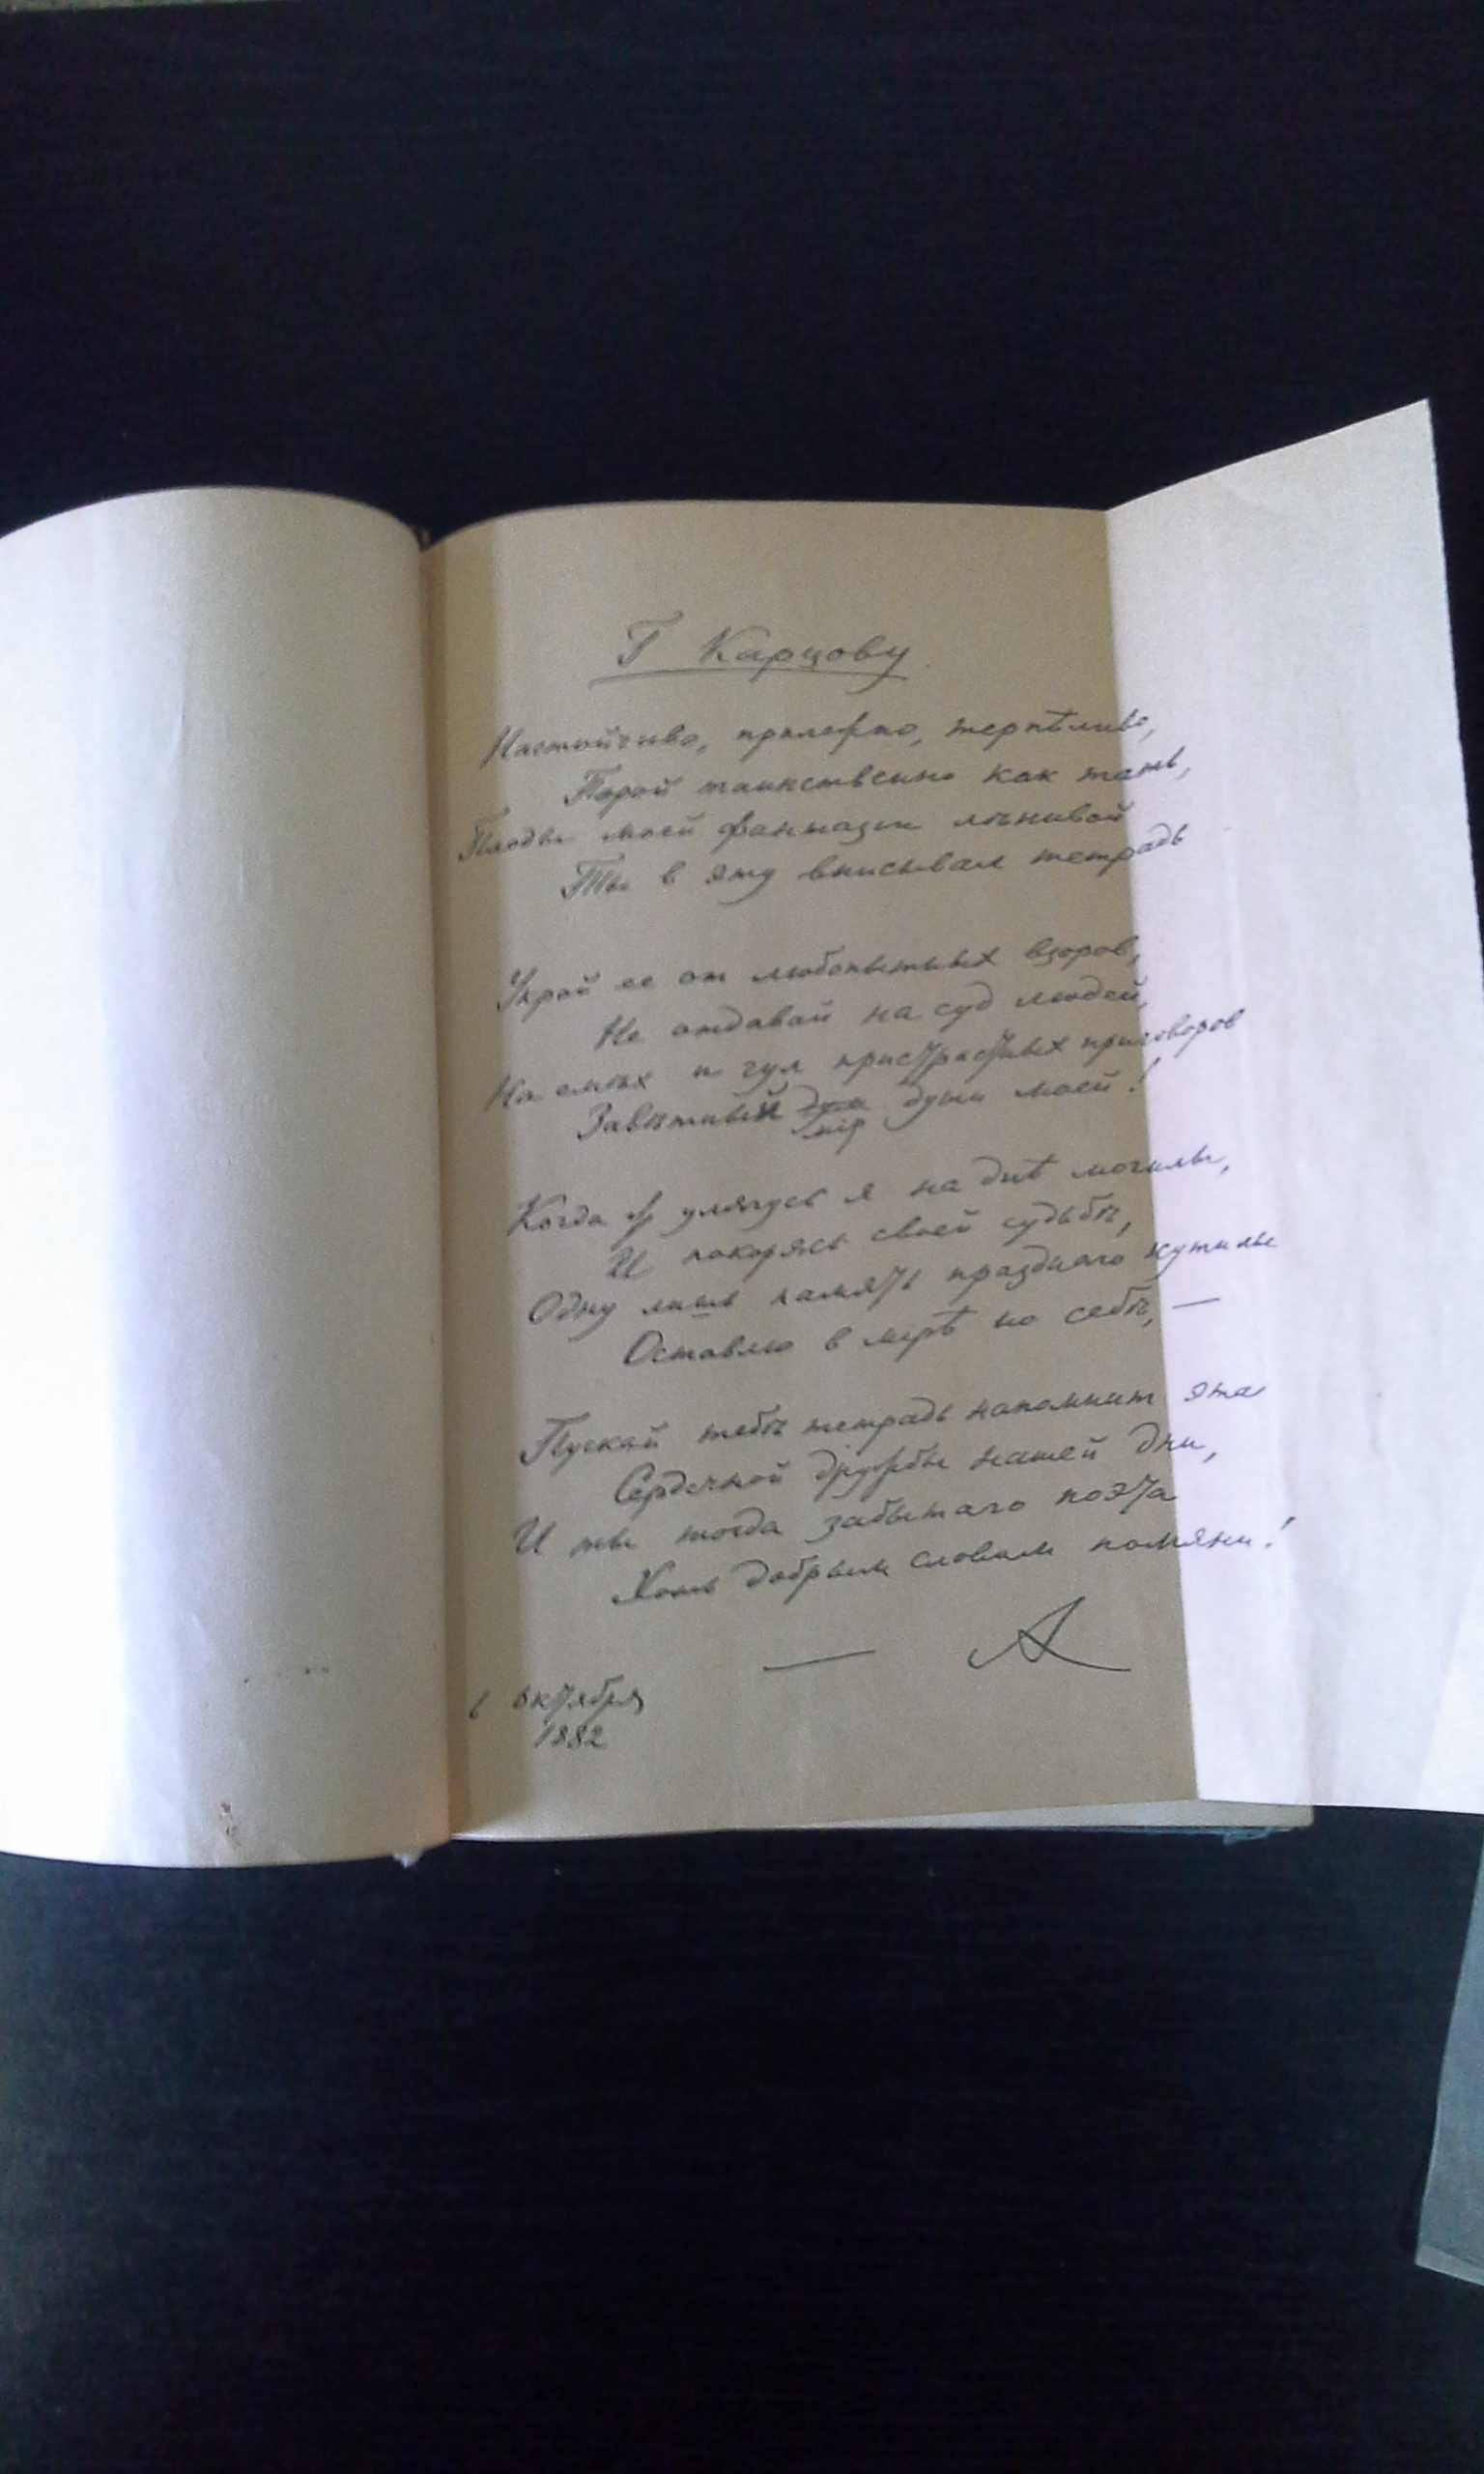 Г Карцову
Настойчиво, прилежно, терпѣливо,
Порой таинственно как тать,
Плоды моей фантазии лѣнивой
Ты в эту вписывал тетрадь
Укрой ее от любопытных взоров,
Не отдавай на суд людей,
На смѣх и гул пристрастных приговоров
Завѣтный мiр души моей!
Когда ж улягусь я на днѣ могилы,
И покорясь своей судьбѣ,
Одну лишь память праздного кутилы
Оставлю в мiрѣ по себѣ, —
Пускай тебѣ тетрадь напомнит эта
Сердечной дружбы нашей дни,
И ты тогда забытаго поэта
Хоть добрым словом помяни!
— А
6 октября
1882